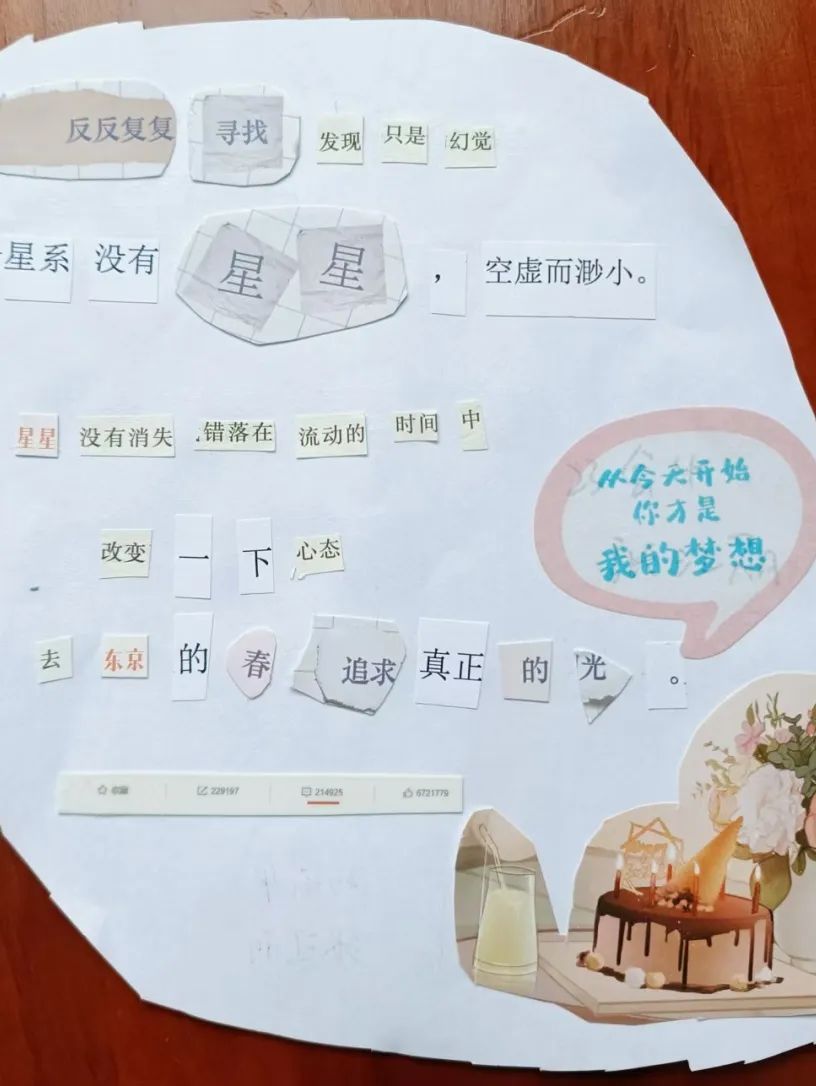 反反复复 寻找 发现 只是 幻觉
星系 没有 星 星 , 空虚而渺小。
星星 没有消失 错落在 流动的 时间 中
从今天开始
你才是
我的梦想
改变 一 下 心态
去 东京 的 春 追求 真正 的 光 。
收藏 229197 214925 6721779